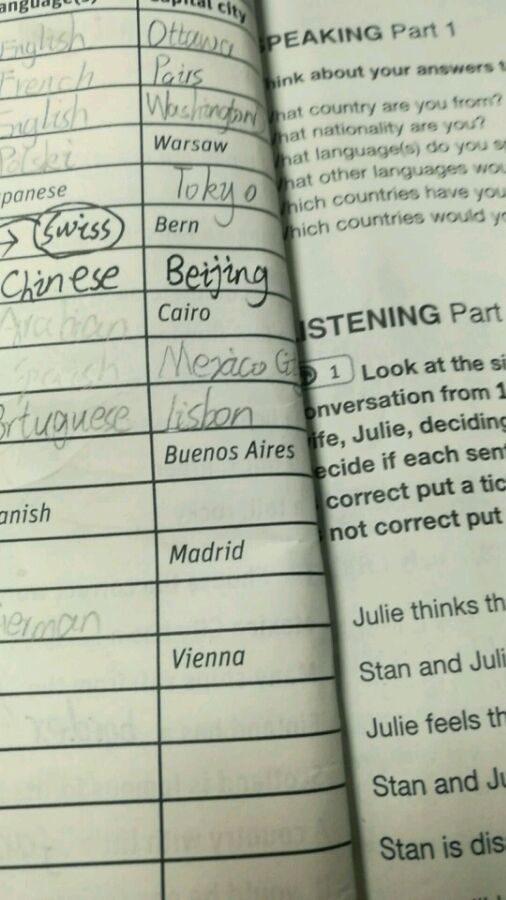 anguage(s) apital city
English Ottawa
French Pairs
English Washington
Polski Warsaw
panese Tokyo
→ Swiss Bern
Chinese Beijing
Arabian Cairo
Spanish Mexico Ci
ortuguese lisbon
Buenos Aires
anish
Madrid
German
Vienna
PEAKING Part 1
hink about your answers t
hat country are you from?
hat nationality are you?
hat language(s) do you s
hat other languages wou
hich countries have you
hich countries would yo
ISTENING Part
1 Look at the si
onversation from 1
ife, Julie, deciding
ecide if each sent
correct put a tic
not correct put
Julie thinks th
Stan and Juli
Julie feels th
Stan and Ju
Stan is dis